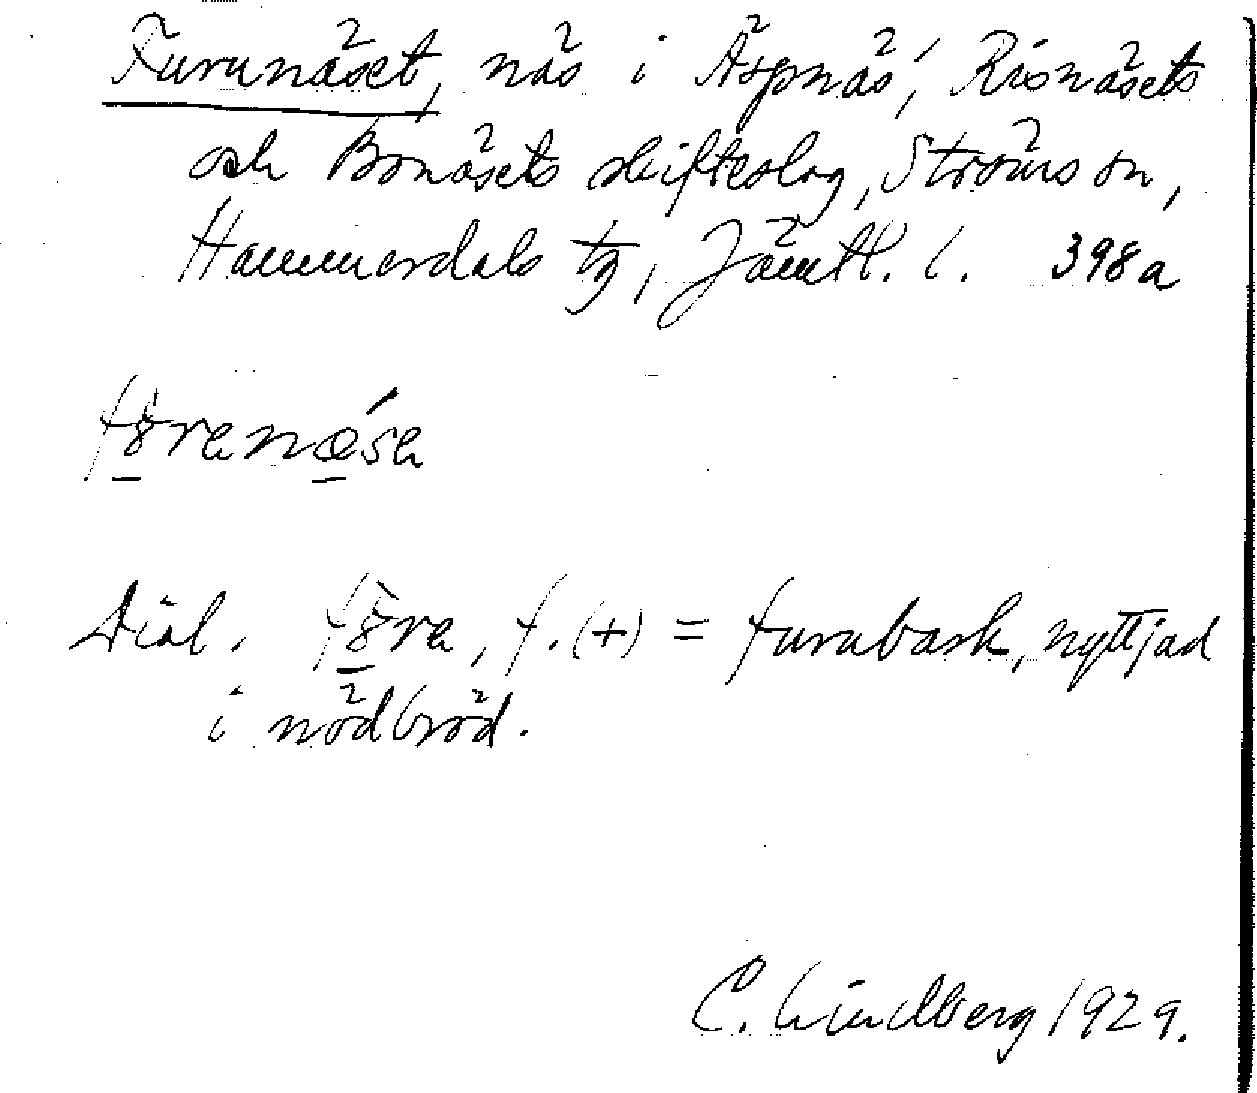 Furunäset, näs i Äspnäs, Risnäsets
och Bonäsets skifteslag, Ströms sn,
Hammerdals tg, Jämtl. l. 398a
fɞ̱renǽ̱sa
Dial. fɞ̱̀ra, f. (+) = furubark, nyttjad
i nödbröd.
C. Lindberg 1929.